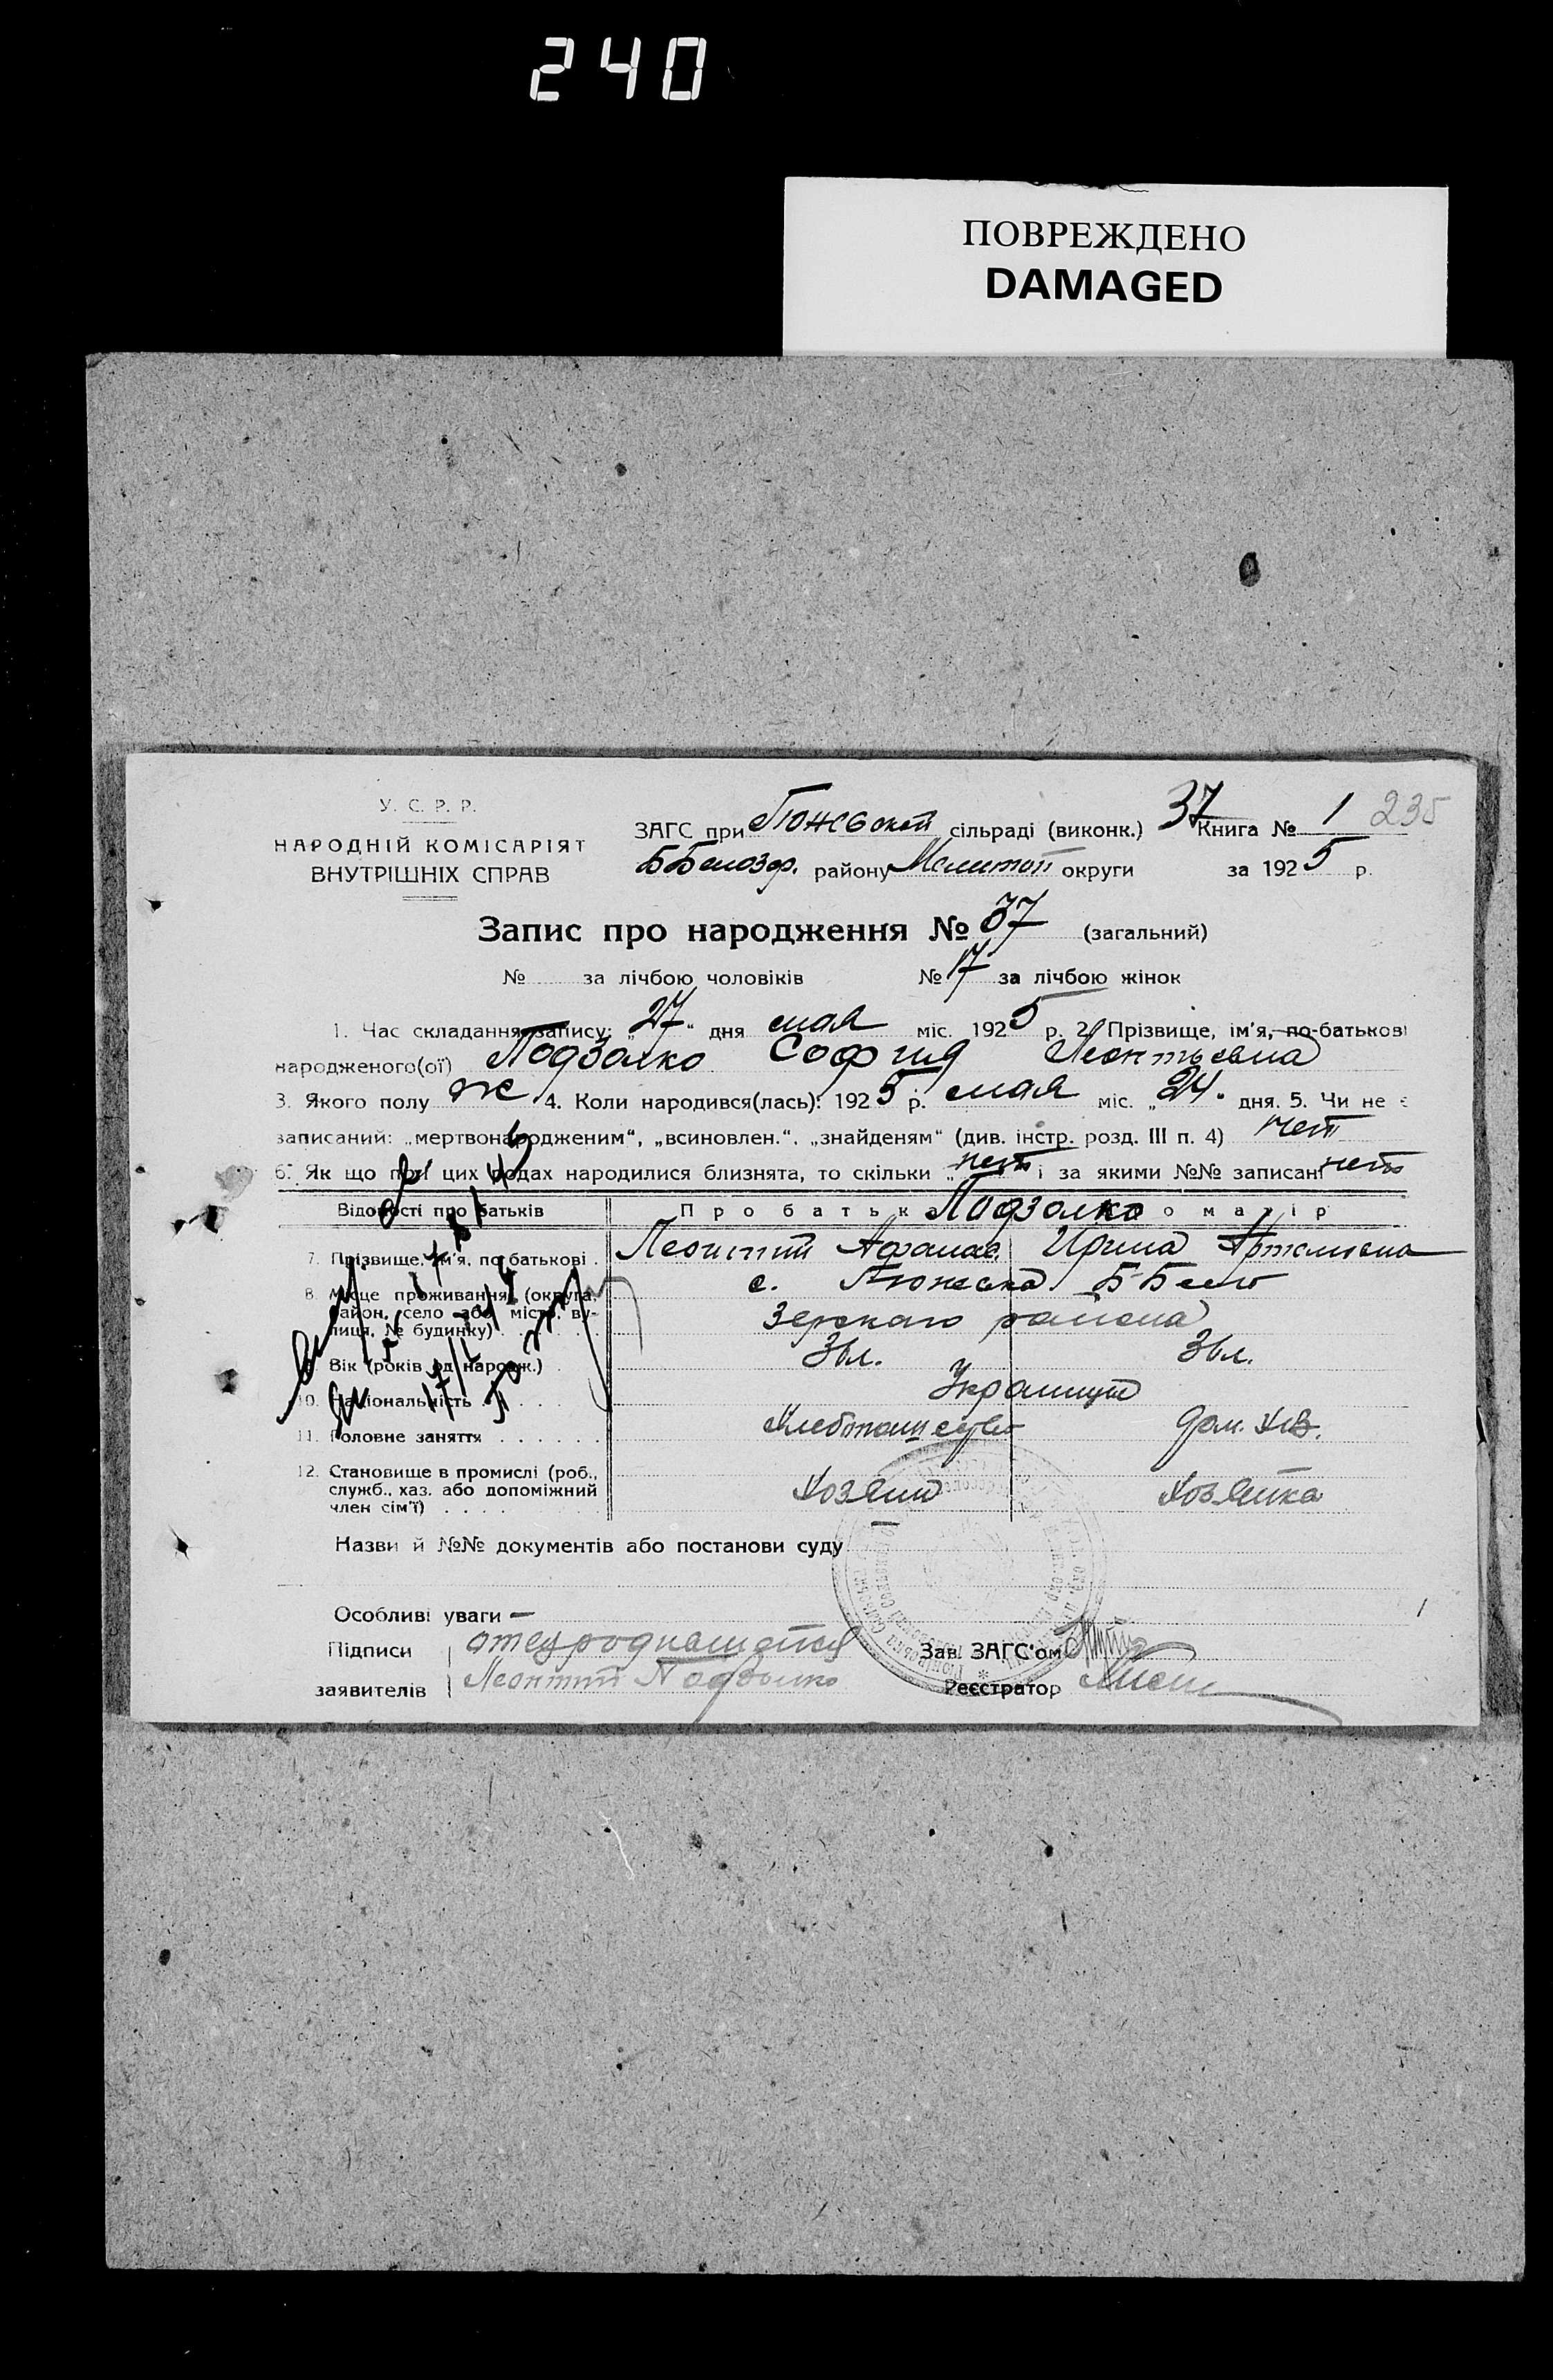 240
ПОВРЕЖДЕНО
DAMAGED
У. С. Р. Р.
НАРОДНІЙ КОМІСАРІЯТ
ВНУТРІШНІХ СПРАВ
ЗАГС при сільраді (виконк.) 37 Книга № 1 235
ББелозер. району Мелитоп округи за 1925 р.
Запис про народження № 37 (загальний)
№ за лічбою чоловіків № 17 за лічбою жінок
1. Час складання запису: „27“ дня мая міс. 1925 р. 2. Прізвище, ім'я, по-батькові
народженого(ої) Подзолко София Леонтьевна
3. Якого полу ж 4. Коли народився(лась): 1925 р. мая міс. „24“ дня. 5. Чи не є
записаний: „мертвонародженим“, „всиновлен.“, „знайденям“ (див. інстр. розд. III п. 4) нет
6. Як що при цих родах народилися близнята, то скільки „нет і за якими №№ записані нет
Відомості про батьків Про батька Подзолко Про матір
7. Прізвище, ім'я, по батькові . Леонтий Афанас. Ирина Артемовна
8. Місце проживання (округа, с. Б-Бело
район, село або місто, ву-
лиця, № будинку) зерского района
9. Вік (років од народж.) 36л. 36л.
10. Національність Украинцы
11. Головне заняття Хлебопашество Дом. хоз.
12. Становище в промислі (роб.,
служб., хаз. або допоміжний Хозяин Хозяйка
член сім'ї)
Назви й №№ документів або постанови суду
Особливі уваги —
Підписи отец родившейся Зав. ЗАГС'ом
заявителів Леонтий Подзолко Реєстратор